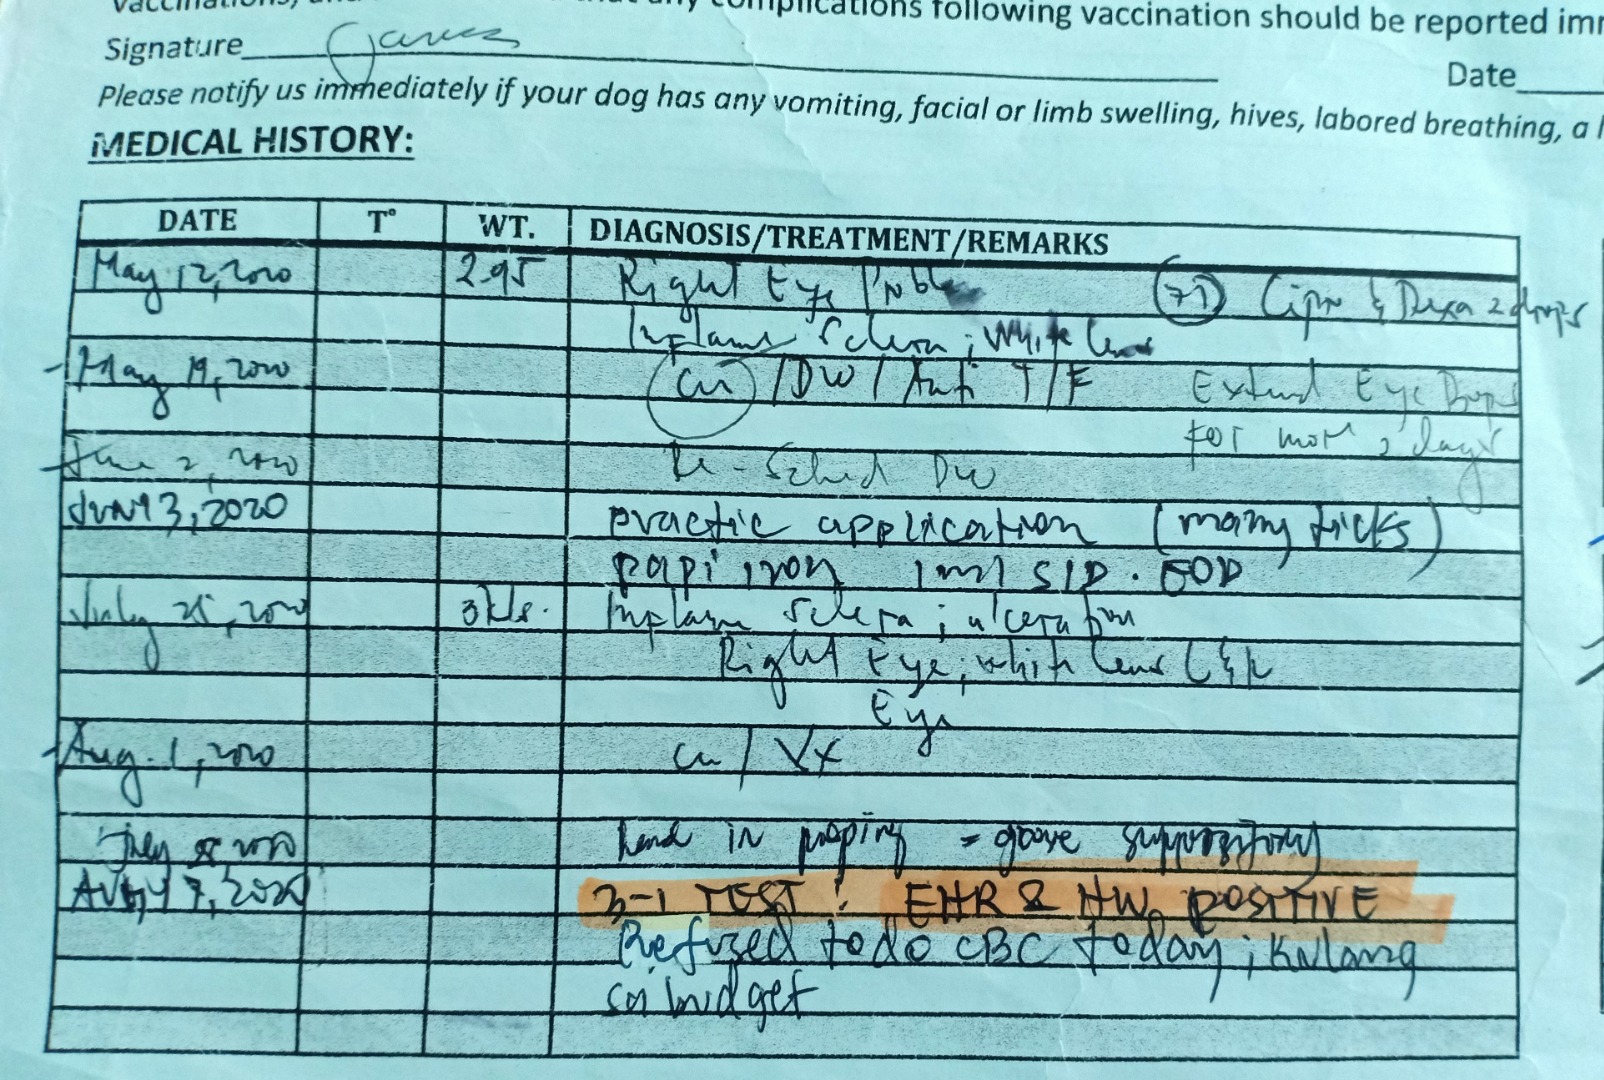 complications following vaccination should be reported
Signature
Date
Please notify us immediately if your dog has any vomiting, facial or limb swelling, hives, labored breathing, a
MEDICAL HISTORY:
DATE T° WT. DIAGNOSIS/TREATMENT/REMARKS
May 12, 2020 2.95 Right Eye 7D Cipro & Dexa 2 drops
Inflame Sclera; White lens
May 19, 2020 /DW/ Anti T/F Extend Eye Drops
For more 2 days
June 2, 2020 Re-Sched DW
Jun 3, 2020 application (many ticks)
papi iron 1ml SID. EOD
July 25, 2020 3kls. Inflame Sclera; ulceration
Right Eye; white lens L & R
Eye
Aug. 1, 2020 / Vx
in = gave suppository
7, 2020 3-1 TEST: EHR & HW POSITIVE
Refused to do CBC today; Kulang
sa budget